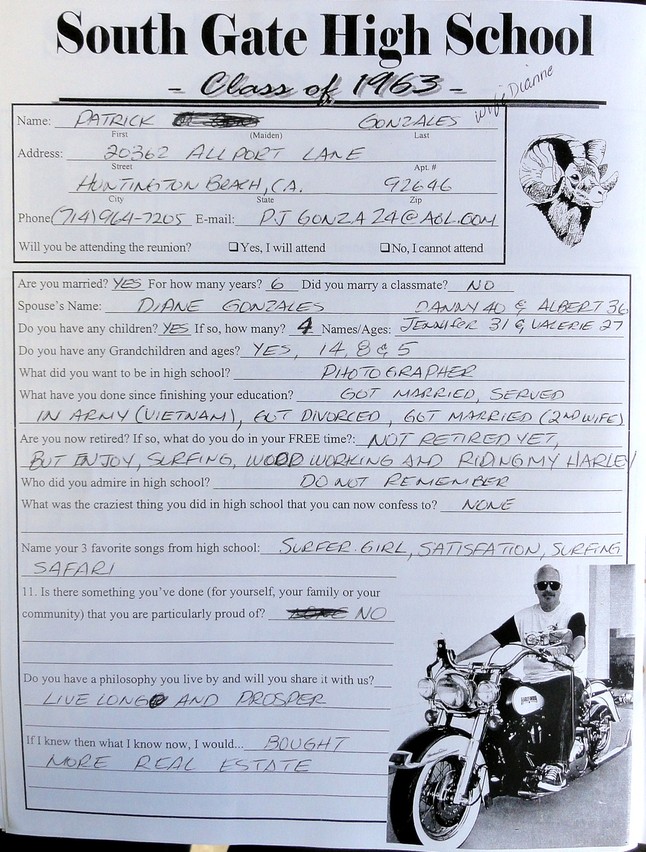 South Gate High School
- Class of 1963 -
wife Dianne
Name: PATRICK GONZALES
First (Maiden) Last
Address: 20362 ALLPORT LANE
Street Apt. #
HUNTINGTON BEACH, CA. 92646
City State Zip
Phone (714) 964-7205 E-mail: PJGONZA24@AOL.COM
Will you be attending the reunion? ☐Yes, I will attend ☐No, I cannot attend
Are you married? YES For how many years? 6 Did you marry a classmate? NO
Spouse's Name: DIANE GONZALES DANNY 40 & ALBERT 36
Do you have any children? YES If so, how many? 4 Names/Ages: JENNIFER 31 & VALERIE 27
Do you have any Grandchildren and ages? YES, 14, 8 & 5
What did you want to be in high school? PHOTOGRAPHER
What have you done since finishing your education? GOT MARRIED, SERVED
IN ARMY (VIETNAM), GOT DIVORCED, GOT MARRIED (2ND WIFE)
Are you now retired? If so, what do you do in your FREE time?: NOT RETIRED YET,
BUT ENJOY, SURFING, WOOD WORKING AND RIDING MY HARLEY
Who did you admire in high school? DO NOT REMEMBER
What was the craziest thing you did in high school that you can now confess to? NONE
Name your 3 favorite songs from high school: SURFER GIRL, SATISFATION, SURFING
SAFARI
11. Is there something you've done (for yourself, your family or your
community) that you are particularly proud of? NO
Do you have a philosophy you live by and will you share it with us?
LIVE LONG AND PROSPER
If I knew then what I know now, I would... BOUGHT
MORE REAL ESTATE